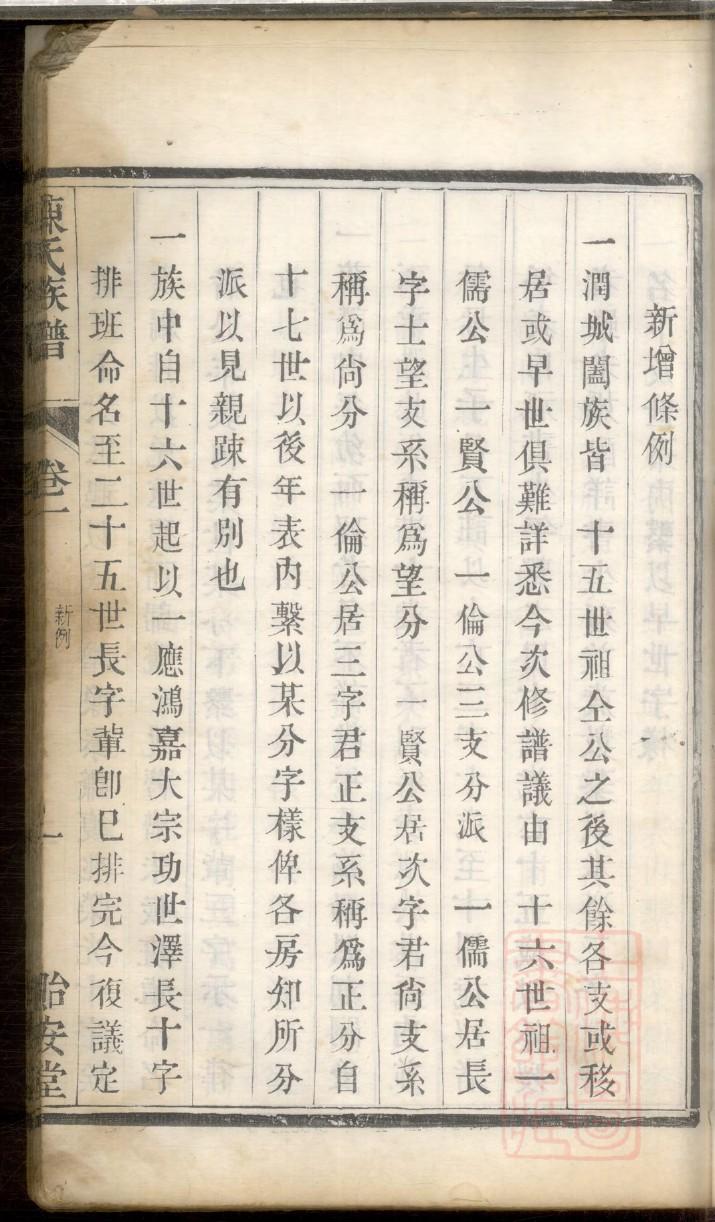 新增條例
一潤城闔族皆 十五世祖仝公之後其餘各支或移
居或早世俱難詳悉今次修譜議由 十六世祖一
儒公 一賢公 一倫公三支分派 一儒公居長
字士望支系稱爲望分 一賢公居次字君尙支系
稱爲尙分 一倫公居三字君正支系稱爲正分自
十七世以後年表內繫以某分字樣俾各房知所分
派以見親踈有別也
一族中自十六世起以一應鴻嘉大宗功世澤長十字
排班命名至二十五世長字輩卽巳排完今復議定
陳氏族譜
卷一
新例
一
貽安堂